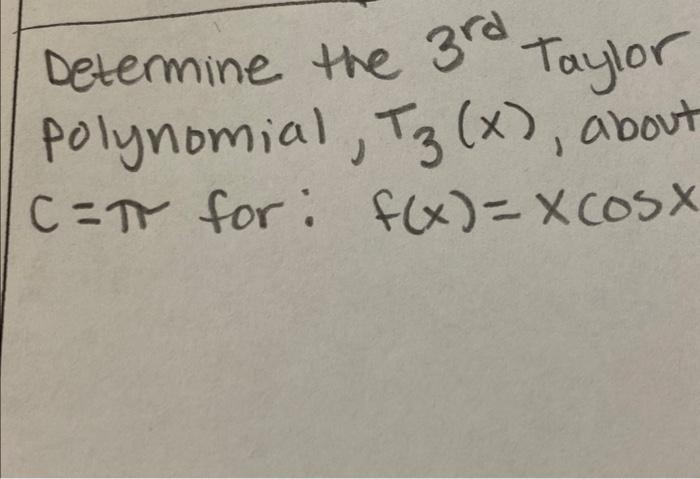 Determine the 3rd Taylor
polynomial, T₃(x), about
C = π for: f(x) = x cosx